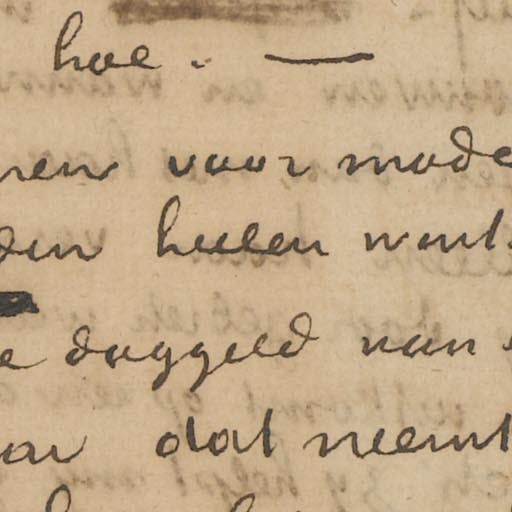 hoe. —
ren voor mode
den heelen wint
e daggeld van
ar dat neemt